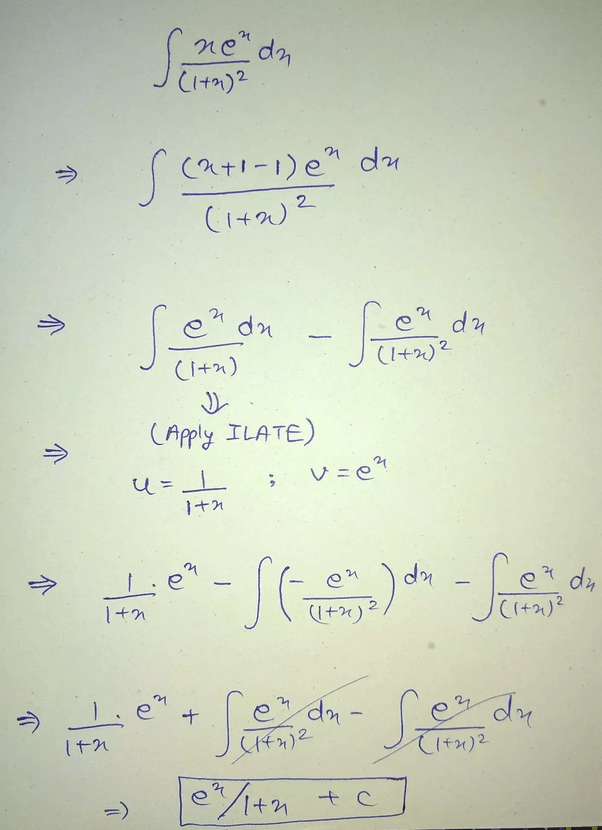 ∫ xe^x/(1+x)^2 dx
⇒ ∫ (x+1-1)e^x/(1+x)^2 dx
⇒ ∫ e^x/(1+x) dx - ∫ e^x/(1+x)^2 dx
⇓
(Apply ILATE)
⇒ u = 1/1+x ; v = e^x
⇒ 1/1+x . e^x - ∫ (- e^x/(1+x)^2) dx - ∫ e^x/(1+x)^2 dx
⇒ 1/1+x . e^x + ∫ e^x/(1+x)^2 dx - ∫ e^x/(1+x)^2 dx
⇒ e^x/1+x + c